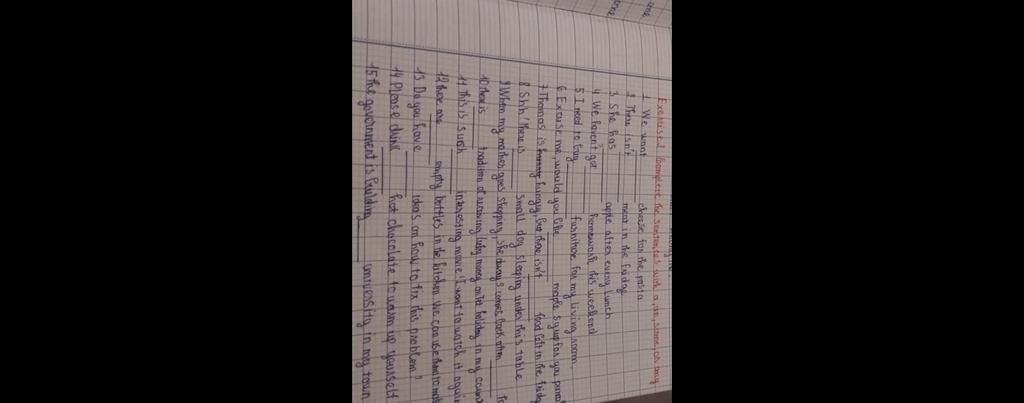 Exercise 1 Complete the sentences with a, an, some, or any
1. We want ______ cheese for the pasta
2 There isn't ______ meat in the fridge
3. She has ______ apple after every lunch
4 We haven't got ______ homework this weekend
5 I need to buy ______ furniture for my living room.
6. Excuse me, would you like ______ maple syrup for you
7 Thomas is hungry, but there isn't ______ food left in the
8 Shh! there is ______ small dog sleeping under this table
9 When my mother goes shopping, she always comes back often ______
10 there is ______ tradition of money on the holiday in my
11 This is such ______ interesting movie! I want to watch it again
12 there are ______ empty bottles in the kitchen we can use them to
13 Do you have ______ ideas on how to fix this problem?
14 Please drink ______ hot chocolate to warm up yourself
15 The government is building ______ university in my town